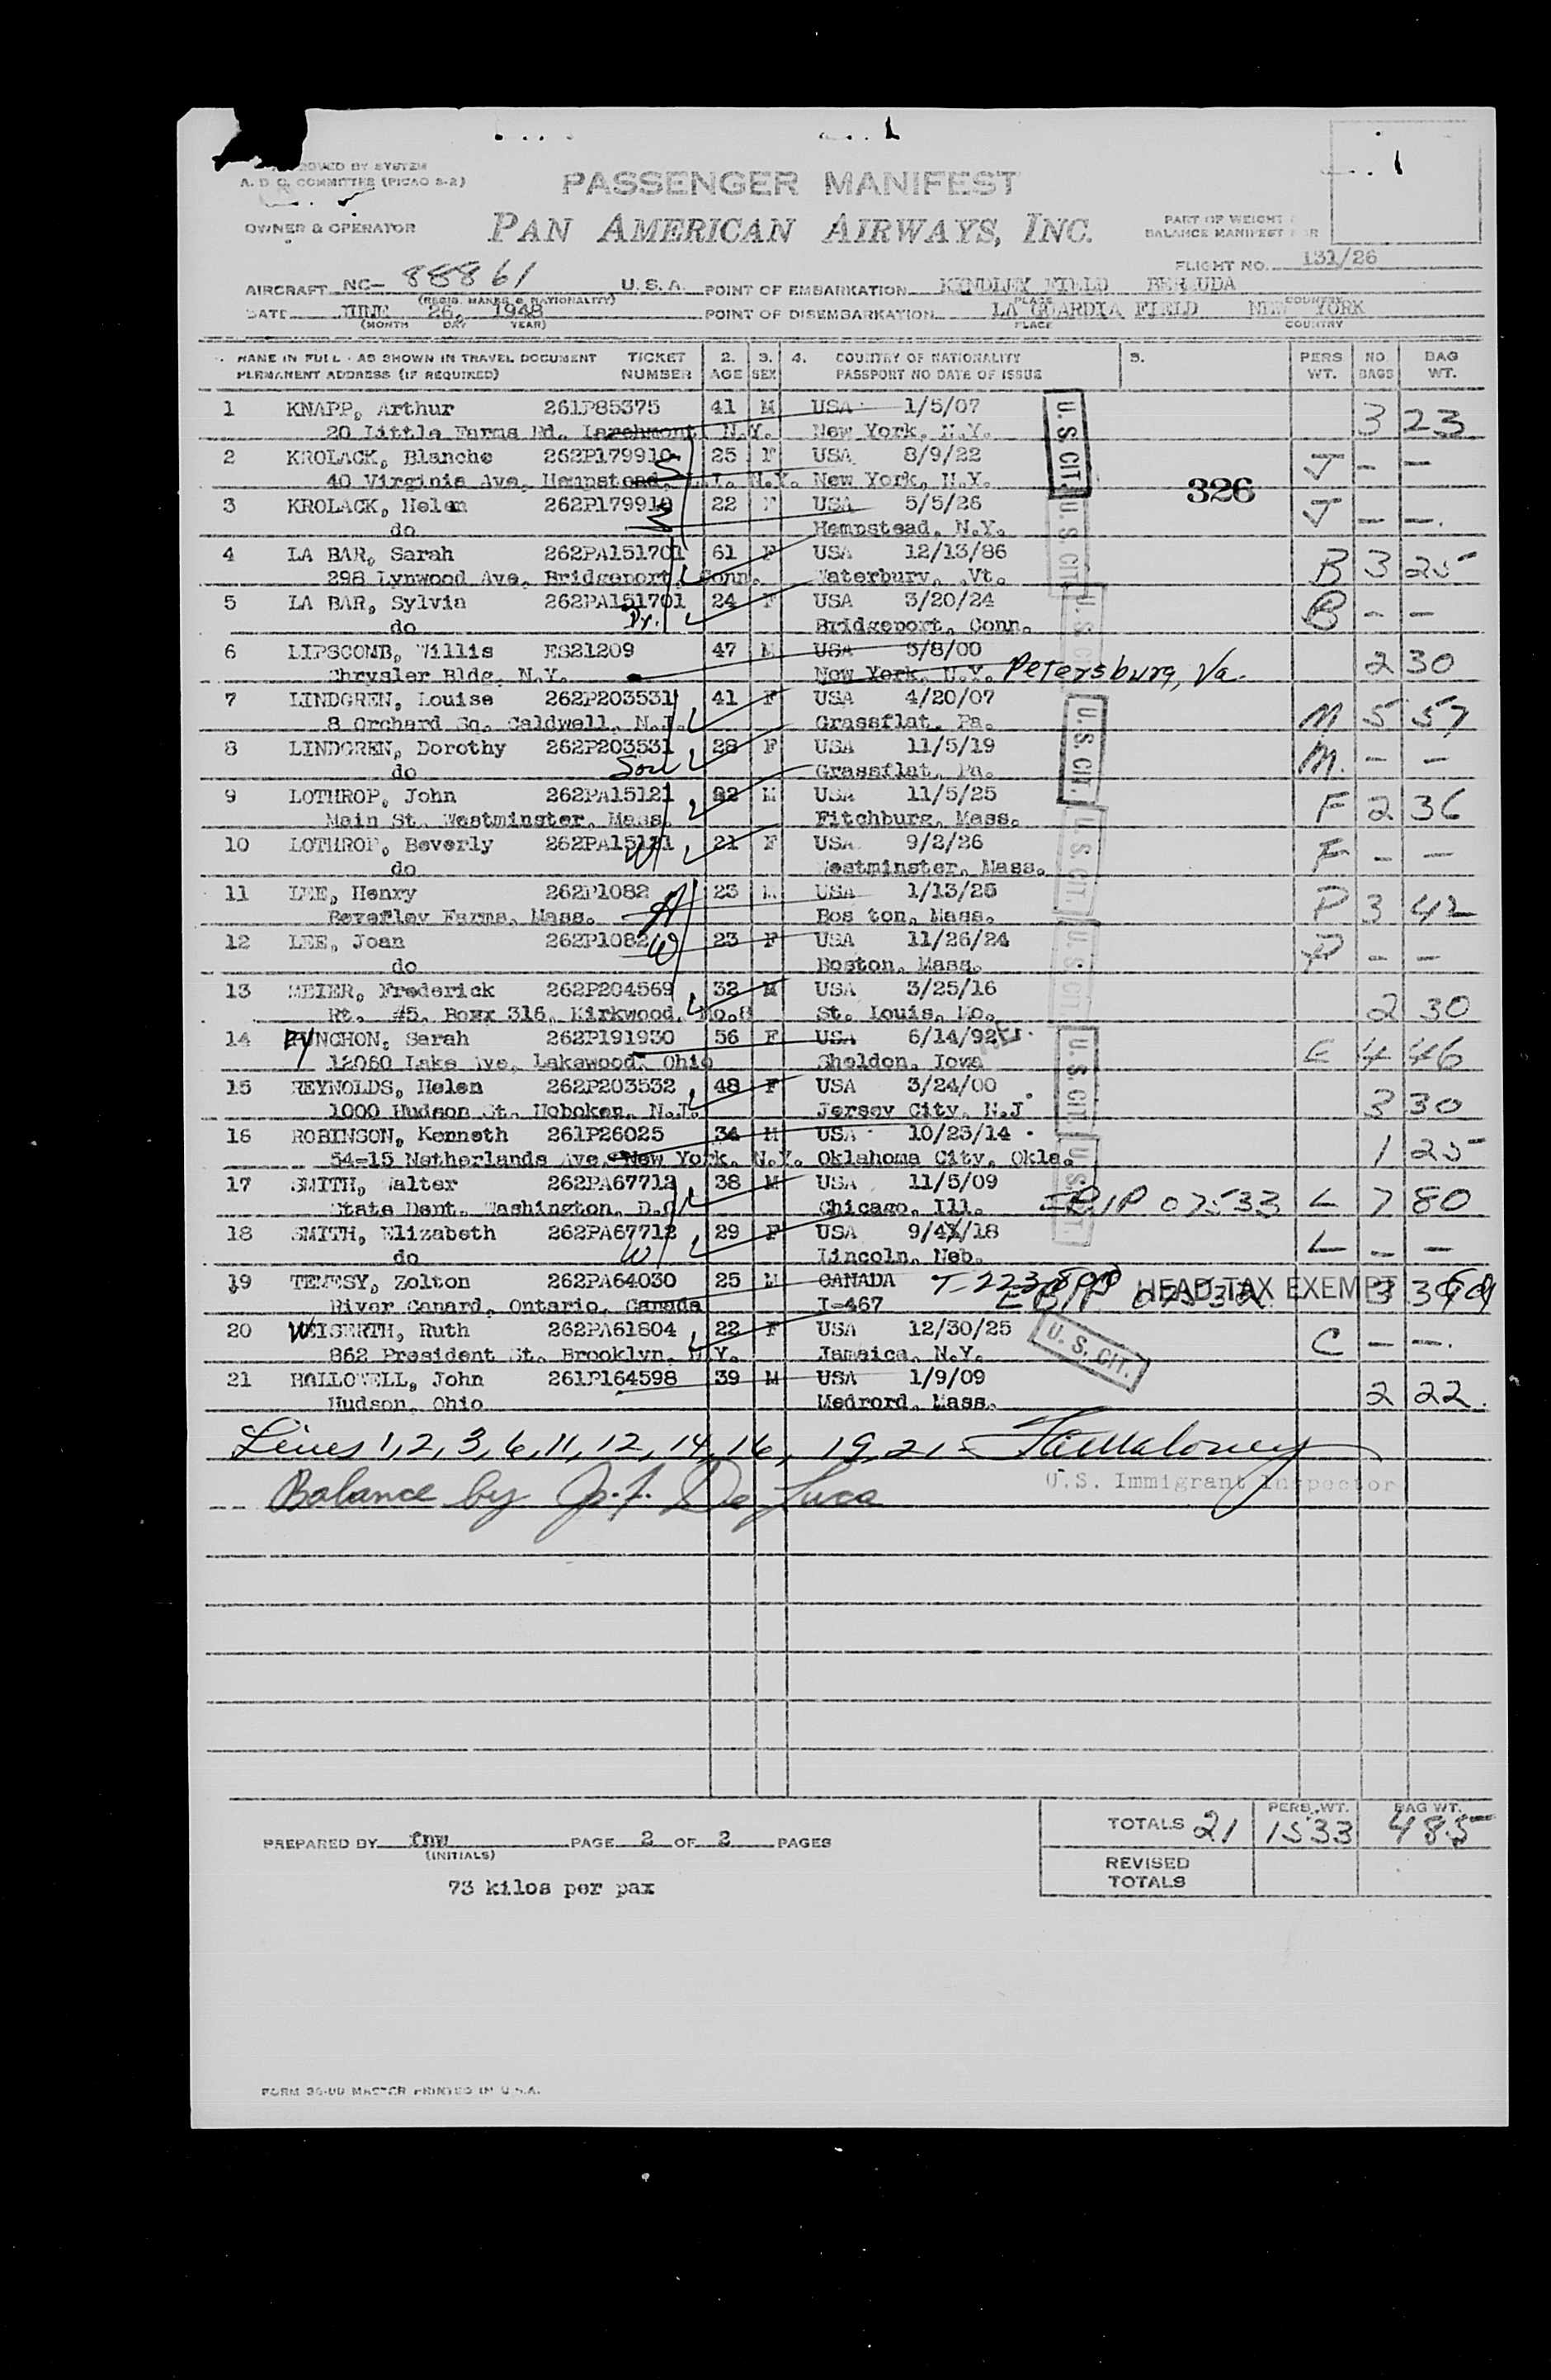 A. D. C. COMMITTEE (PICAO S-2)
PASSENGER MANIFEST
OWNER & OPERATOR PAN AMERICAN AIRWAYS, INC.
PART OF WEIGHT
BALANCE MANIFEST FOR
FLIGHT NO. 131/26
AIRCRAFT NC- 88861 U.S.A. POINT OF EMBARKATION KINDLEY FIELD BERMUDA
(REGIS. MARKS & NATIONALITY) PLACE COUNTRY
DATE JUNE 26, 1948 POINT OF DISEMBARKATION LA GUARDIA FIELD NEW YORK
(MONTH DAY YEAR) PLACE COUNTRY
NAME IN FULL - AS SHOWN IN TRAVEL DOCUMENT TICKET 2. 3. 4. COUNTRY OF NATIONALITY 5. PERS NO BAG
PERMANENT ADDRESS (IF REQUIRED) NUMBER AGE SEX PASSPORT NO DATE OF ISSUE WT. BAGS WT.
1 KNAPP, Arthur 261P85375 41 M USA 1/5/07 3 23
20 Little Farms Rd. Larchmont N.Y. New York, N.Y.
U.S. CIT.
2 KROLACK, Blanche 262P179910 25 F USA 8/9/22 J — —
40 Virginia Ave, Hempstead, L.I. N.Y. New York, N.Y.
326
3 KROLACK, Helen 262P179910 22 F USA 5/5/26 J — —.
do Hempstead, N.Y.
U.S. CIT.
4 LA BAR, Sarah 262PA151701 61 F USA 12/13/86 B 3 25
298 Lynwood Ave, Bridgeport, Conn. Waterbury, .Vt.
5 LA BAR, Sylvia 262PA151701 24 F USA 3/20/24 B — —
do Bridgeport, Conn.
U.S. CIT.
6 LIPSCOMB, Willis ES21209 47 M USA 5/8/00 2 30
Chrysler Bldg, N.Y. New York, N.Y. Petersburg, Va.
7 LINDGREN, Louise 262P203531 41 F USA 4/20/07 M 5 57
8 Orchard Sq. Caldwell, N.J. Grassflat, Pa.
U.S. CIT.
8 LINDGREN, Dorothy 262P203531 28 F USA 11/5/19 M. — —
do Grassflat, Pa.
9 LOTHROP, John 262PA15121 22 M USA 11/5/25 F 2 36
Main St. Westminster, Mass. Fitchburg, Mass.
U.S. CIT.
10 LOTHROP, Beverly 262PA15121 W 21 F USA 9/2/26 F — —
do Westminster, Mass.
11 LEE, Henry 262P1082 H 23 M USA 1/13/25 P 3 42
Beverley Farms, Mass. Bos ton, Mass.
12 LEE, Joan 262P1082 W 23 F USA 11/26/24 P — —
do Boston, Mass.
U.S. CIT.
13 MEIER, Frederick 262P204569 32 M USA 3/25/16 2 30
Rt. #5, Boxx 316, Kirkwood, Mo.8 St. Louis, Mo.
14 PYNCHON, Sarah 262P191930 56 F USA 6/14/92 E 4 46
12060 Lake Ave, Lakewood, Ohio Sheldon, Iowa
U.S. CIT.
15 REYNOLDS, Helen 262P203532 48 F USA 3/24/00 3 30
1000 Hudson St. Hoboken, N.J. Jersey City, N.J
16 ROBINSON, Kenneth 261P26025 34 M USA 10/23/14 1 25
54-15 Netherlands Ave, New York, N.Y. Oklahoma City, Okla.
U.S. CIT.
17 SMITH, Walter 262PA67712 38 M USA 11/5/09 L 7 80
State Dept. Washington, D.C. Chicago, Ill. 07533
18 SMITH, Elizabeth 262PA67712 W 29 F USA 9/4X/18 L — —
do Lincoln, Neb.
19 TEMESY, Zolton 262PA64030 25 M CANADA HEAD TAX EXEMPT 3
River Canard, Ontario, Canada I-467
20 WEIGERTH, Ruth 262PA61804 22 F USA 12/30/25 C — —.
862 President St. Brooklyn, N.Y. Jamaica, N.Y.
U. S. CIT.
21 HALLOWELL, John 261P164598 39 M USA 1/9/09 2 22.
Hudson, Ohio Medrord, Mass.
Lines 1, 2, 3, 6, 11, 12, 14, 16, 19, 21
U.S. Immigrant Inspector
Balance by J. J. De Luca
TOTALS 21 PERS. WT. 1533 BAG WT. 485
PREPARED BY fnw PAGE 2 OF 2 PAGES
(INITIALS)
REVISED
TOTALS
73 kilos per pax
FORM 36-00 MASTER PRINTED IN U.S.A.